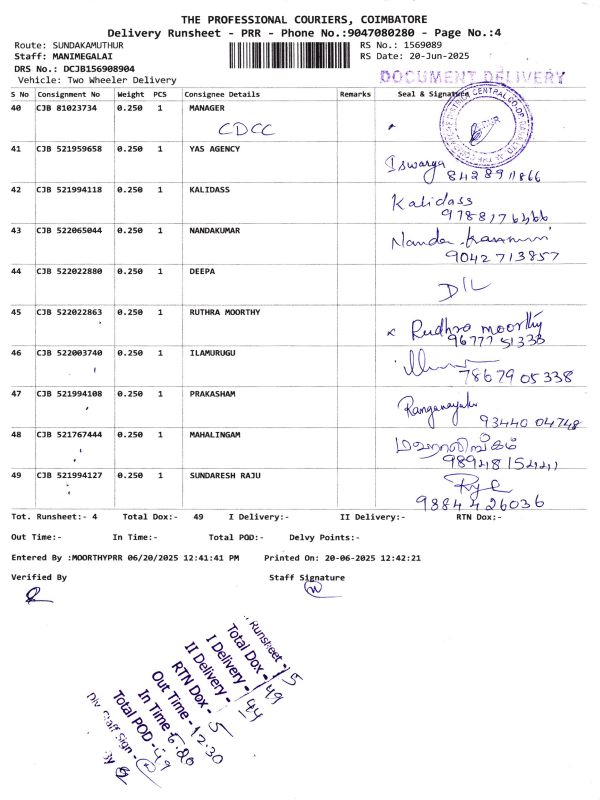 THE PROFESSIONAL COURIERS, COIMBATORE
Delivery Runsheet - PRR - Phone No.:9047080280 - Page No.:4
Route: SUNDAKAMUTHUR
RS No.: 1569089
Staff: MANIMEGALAI
RS Date: 20-Jun-2025
DRS No.: DCJB156908904
Vehicle: Two Wheeler Delivery
DOCUMENT DELIVERY
S No Consignment No Weight PCS Consignee Details Remarks Seal & Signature
40 CJB 81023734 0.250 1 MANAGER
CDCC
41 CJB 521959658 0.250 1 YAS AGENCY
Iswarya
8428911866
42 CJB 521994118 0.250 1 KALIDASS
Kalidass
43 CJB 522065044 0.250 1 NANDAKUMAR
9042713857
44 CJB 522022880 0.250 1 DEEPA
D/L
45 CJB 522022863 0.250 1 RUTHRA MOORTHY
x Rudhra moorthy
9677751333
46 CJB 522003740 0.250 1 ILAMURUGU
7867905338
47 CJB 521994108 0.250 1 PRAKASHAM
Ranganayaki
93440 04748
48 CJB 521767444 0.250 1 MAHALINGAM
மஹாலிங்கம்
49 CJB 521994127 0.250 1 SUNDARESH RAJU
9884426036
Tot. Runsheet:- 4 Total Dox:- 49 I Delivery:- II Delivery:- RTN Dox:-
Out Time:- In Time:- Total POD:- Delvy Points:-
Entered By :MOORTHYPRR 06/20/2025 12:41:41 PM Printed On: 20-06-2025 12:42:21
Verified By Staff Signature
Runsheet - 5
Total Dox - 49
I Delivery - 44
II Delivery -
RTN Dox - 5
Out Time - 12.30
In Time - 6.20
Total POD - 49
Div Staff Sign -
By